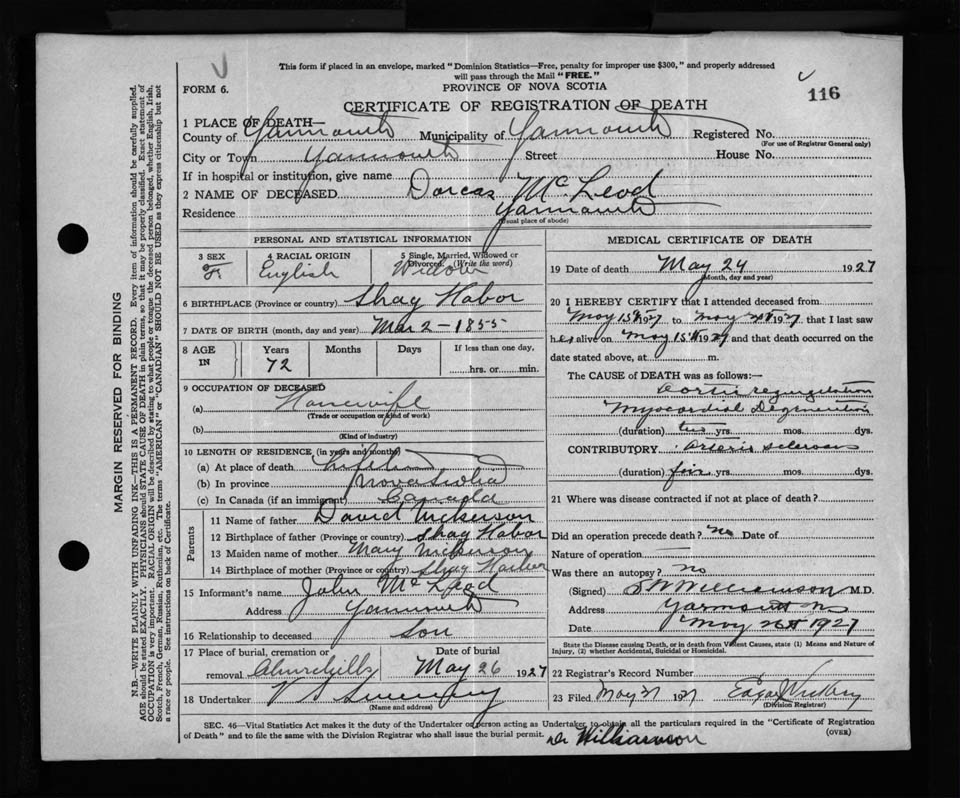 This form if placed in an envelope, marked "Dominion Statistics—Free, penalty for improper use $300," and properly addressed
will pass through the Mail "FREE."
FORM 6.
PROVINCE OF NOVA SCOTIA
116
CERTIFICATE OF REGISTRATION OF DEATH
1 PLACE OF DEATH—
County of Yarmouth Municipality of Yarmouth Registered No.
(For use of Registrar General only)
City or Town Yarmouth Street House No.
If in hospital or institution, give name
2 NAME OF DECEASED Dorcas McLeod
Residence Yarmouth
(Usual place of abode)
PERSONAL AND STATISTICAL INFORMATION
3 SEX 4 RACIAL ORIGIN 5 Single, Married, Widowed or Divorced. (Write the word)
F English Widow
6 BIRTHPLACE (Province or country) Shag Habor
7 DATE OF BIRTH (month, day and year) Mar 2 - 1855
8 AGE IN Years Months Days If less than one day,
72 hrs. or min.
9 OCCUPATION OF DECEASED
(a) Housewife
(Trade or occupation or kind of work)
(b)
(Kind of industry)
10 LENGTH OF RESIDENCE (in years and months)
(a) At place of death
(b) In province Nova Scotia
(c) In Canada (if an immigrant) Canada
Parents
11 Name of father David Nickerson
12 Birthplace of father (Province or country) Shag Habor
13 Maiden name of mother Mary Nickerson
14 Birthplace of mother (Province or country) Shag Harbor
15 Informant's name John McLeod
Address Yarmouth
16 Relationship to deceased son
17 Place of burial, cremation or Date of burial
removal Churchills May 26 1927
18 Undertaker V S Sweeny
(Name and address)
MEDICAL CERTIFICATE OF DEATH
19 Date of death May 24 1927
(Month, day and year)
20 I HEREBY CERTIFY that I attended deceased from
May 15th 1927 to May 1927 that I last saw
her alive on May 15th 1927 and that death occurred on the
date stated above, at m.
The CAUSE of DEATH was as follows:—
Aortic regurgitation
Myocardial Degeneration
(duration) yrs. mos. dys.
CONTRIBUTORY Arterio sclerosis
(duration) five yrs. mos. dys.
21 Where was disease contracted if not at place of death?
Did an operation precede death? no Date of
Nature of operation
Was there an autopsy? no
(Signed) Williamson M.D.
Address Yarmouth NS
Date May 1927
State the Disease causing Death, or in death from Violent Causes, state (1) Means and Nature of
Injury, (2) whether Accidental, Suicidal or Homicidal.
22 Registrar's Record Number
23 Filed May 1927
(Division Registrar)
SEC. 46—Vital Statistics Act makes it the duty of the Undertaker or person acting as Undertaker to obtain all the particulars required in the "Certificate of Registration
of Death" and to file the same with the Division Registrar who shall issue the burial permit.
(OVER)
Dr Williamson
MARGIN RESERVED FOR BINDING
N.B.—WRITE PLAINLY WITH UNFADING INK—THIS IS A PERMANENT RECORD. Every item of information should be carefully supplied.
AGE should be stated EXACTLY. PHYSICIANS should STATE CAUSE OF DEATH in plain terms, so that it may be properly classified. Exact statement of
OCCUPATION is very important. RACIAL ORIGIN will be described by stating to what people or tongue the deceased person belonged, whether English, Irish,
Scotch, French, German, Russian, Ruthenian, etc. The terms "AMERICAN" or "CANADIAN" SHOULD NOT BE USED as they express citizenship but not
a race or people. See instructions on back of Certificate.